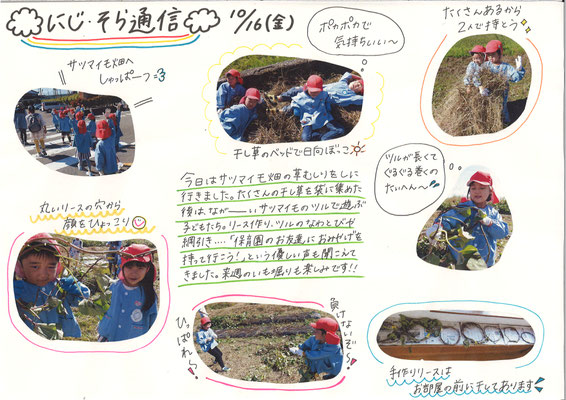 にじ・そら通信
10/16(金)
サツマイモ畑へ
しゅっぱーつ
ポカポカで
気持ちいい〜
たくさんあるから
2人で持とう
干し草のベッドで日向ぼっこ
ツルが長くて
ぐるぐる巻くの
たいへん〜
丸いリースの穴から
顔をひょっこり
今日はサツマイモ畑の草むしりをしに
行きました。たくさんの干し草を袋に集めた
後は、なが――いサツマイモのツルで遊ぶ
子どもたち。リース作り、ツルのなわとびや
綱引き…。「保育園のお友達におみやげを
持って行こう!」という優しい声も聞こえて
きました。来週のいも掘りも楽しみです!!
ひっぱれ〜
負けないぞ〜!
手作りリースは
お部屋の前に干してあります